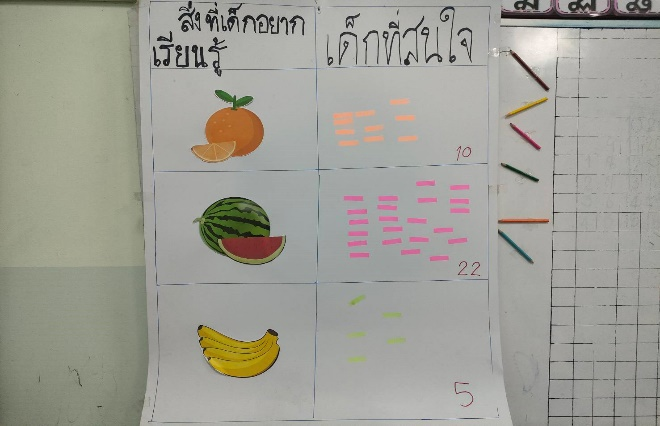 สิ่งที่เด็กอยาก
เรียนรู้
เด็กที่สนใจ
10
22
5